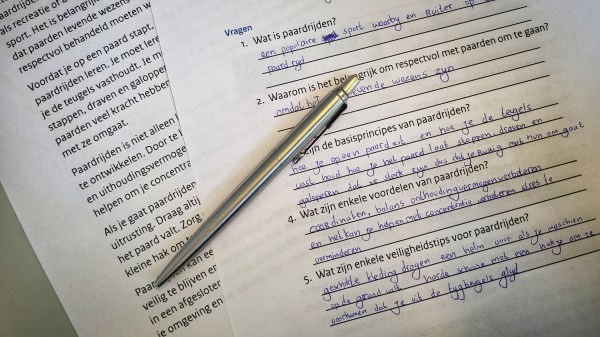 als recreatie of
sport. Het is belangrijk
dat paarden levende wezens
respectvol behandeld moeten w
Voordat je op een paard stapt,
paardrijden leren. Je moet lere
je de teugels vasthoudt. Je m
stappen, draven en galopper
paarden veel kracht hebben
met ze omgaat.
Paardrijden is niet alleen l
te ontwikkelen. Door te
en uithoudingsvermoge
helpen om je concentra
Als je gaat paardrijden
uitrusting. Draag altij
het paard valt. Zorg
kleine hak om
Paar en kan ee
veilig te blijven er
in een afgesloter
je omgeving en
Vragen
1. Wat is paardrijden?
een populaire sport waarby en Ruiter op
paard ryd
2. Waarom is het belangrijk om respectvol met paarden om te gaan?
omdat het levende wezens zyn
zijn de basisprincipes van paardrijden?
hoe je op een paard zit en hoe je de teugels
vast houd hoe je het paard laat stappen, draven en
galopperen dat ze sterk zyn dus dat je zuinig met hun om gaat
4. Wat zijn enkele voordelen van paardrijden?
coordinaten, balans onthoudingsvermogen verbeteren
en het kan je helpen met concentratie verbeteren stres te
verminderen
5. Wat zijn enkele veiligheidstips voor paardrijden?
geschikte kleding dragen een helm voor als je meschien
op de grond valt harde schoene met een hakje om te
voorkomen dat je uit de tygbeugels glyd